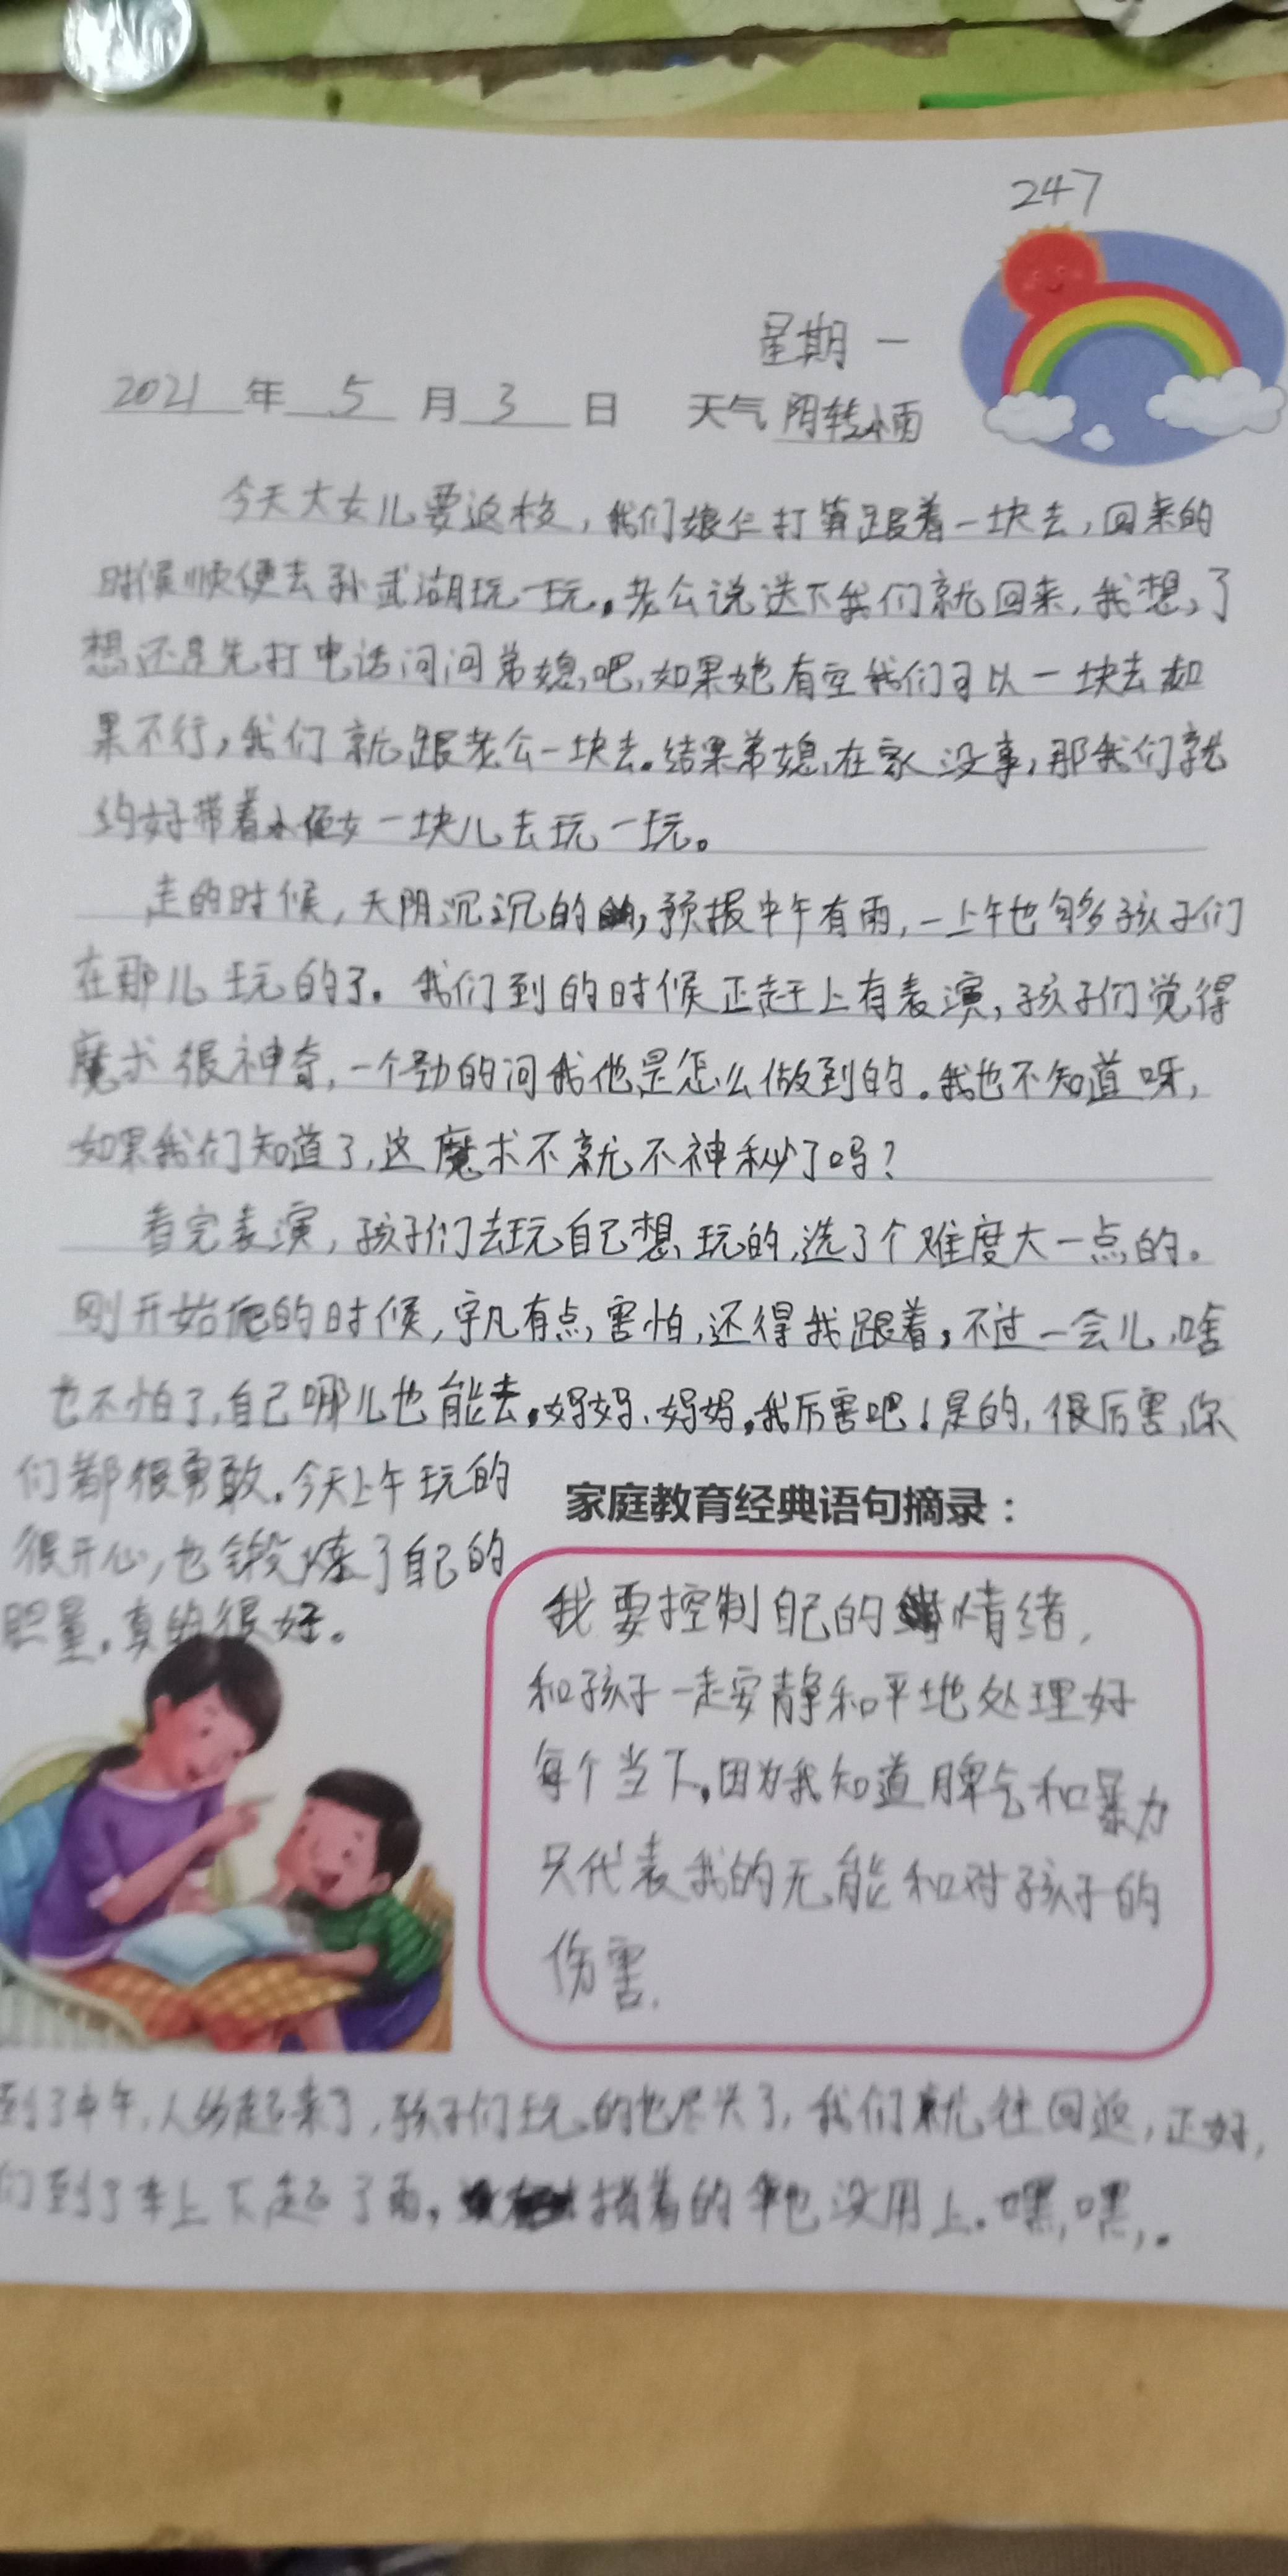 247
星期一
2021年5月3日 天气 阴转小雨
今天大女儿要返校，我们娘仨打算跟着一块去，回来的
时候顺便去孙武湖玩一玩。老公说送下我们就回来，我想了
想还是先打电话问问弟媳吧，如果她有空我们可以一块去如
果不行，我们就跟老公一块去。结果弟媳在家没事，那我们就
约好带着小侄女一块儿去玩一玩。
走的时候，天阴沉沉的，预报中午有雨，一上午也够孩子们
在那儿玩的了。我们到的时候正赶上有表演，孩子们觉得
魔术很神奇，一个劲的问我他是怎么做到的。我也不知道呀，
如果我们知道了，这魔术不就不神秘了吗？
看完表演，孩子们去玩自己想玩的，选了个难度大一点的。
刚开始爬的时候，宇凡有点害怕，还得我跟着，不过一会儿啥
也不怕了，自己哪儿也能去。妈妈、妈妈，我厉害吧！是的，很厉害，你
们都很勇敢。今天上午玩的
很开心，也锻炼了自己的
胆量，真的很好。
家庭教育经典语句摘录：
我要控制自己的情绪，
和孩子一走安静和平地处理好
每个当下。因为我知道脾气和暴力
只代表我的无能和对孩子的
伤害。
到了中午，人多起来了，孩子们玩的也尽兴了，我们就往回返，正好，
们到了车上下起了雨。捎着的伞也没用上。嘿，嘿，。